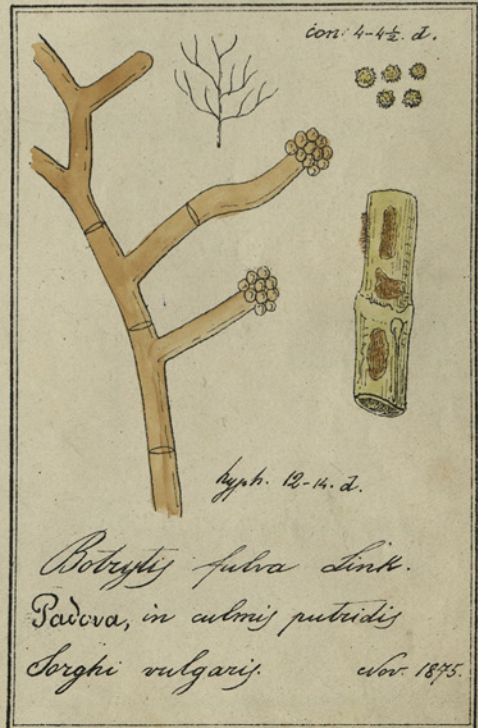 con: 4-4½. d.
hyph. 12-14. d.
Botrytis fulva Link.
Padova, in culmis putridis
Sorghi vulgaris. Nov. 1875.